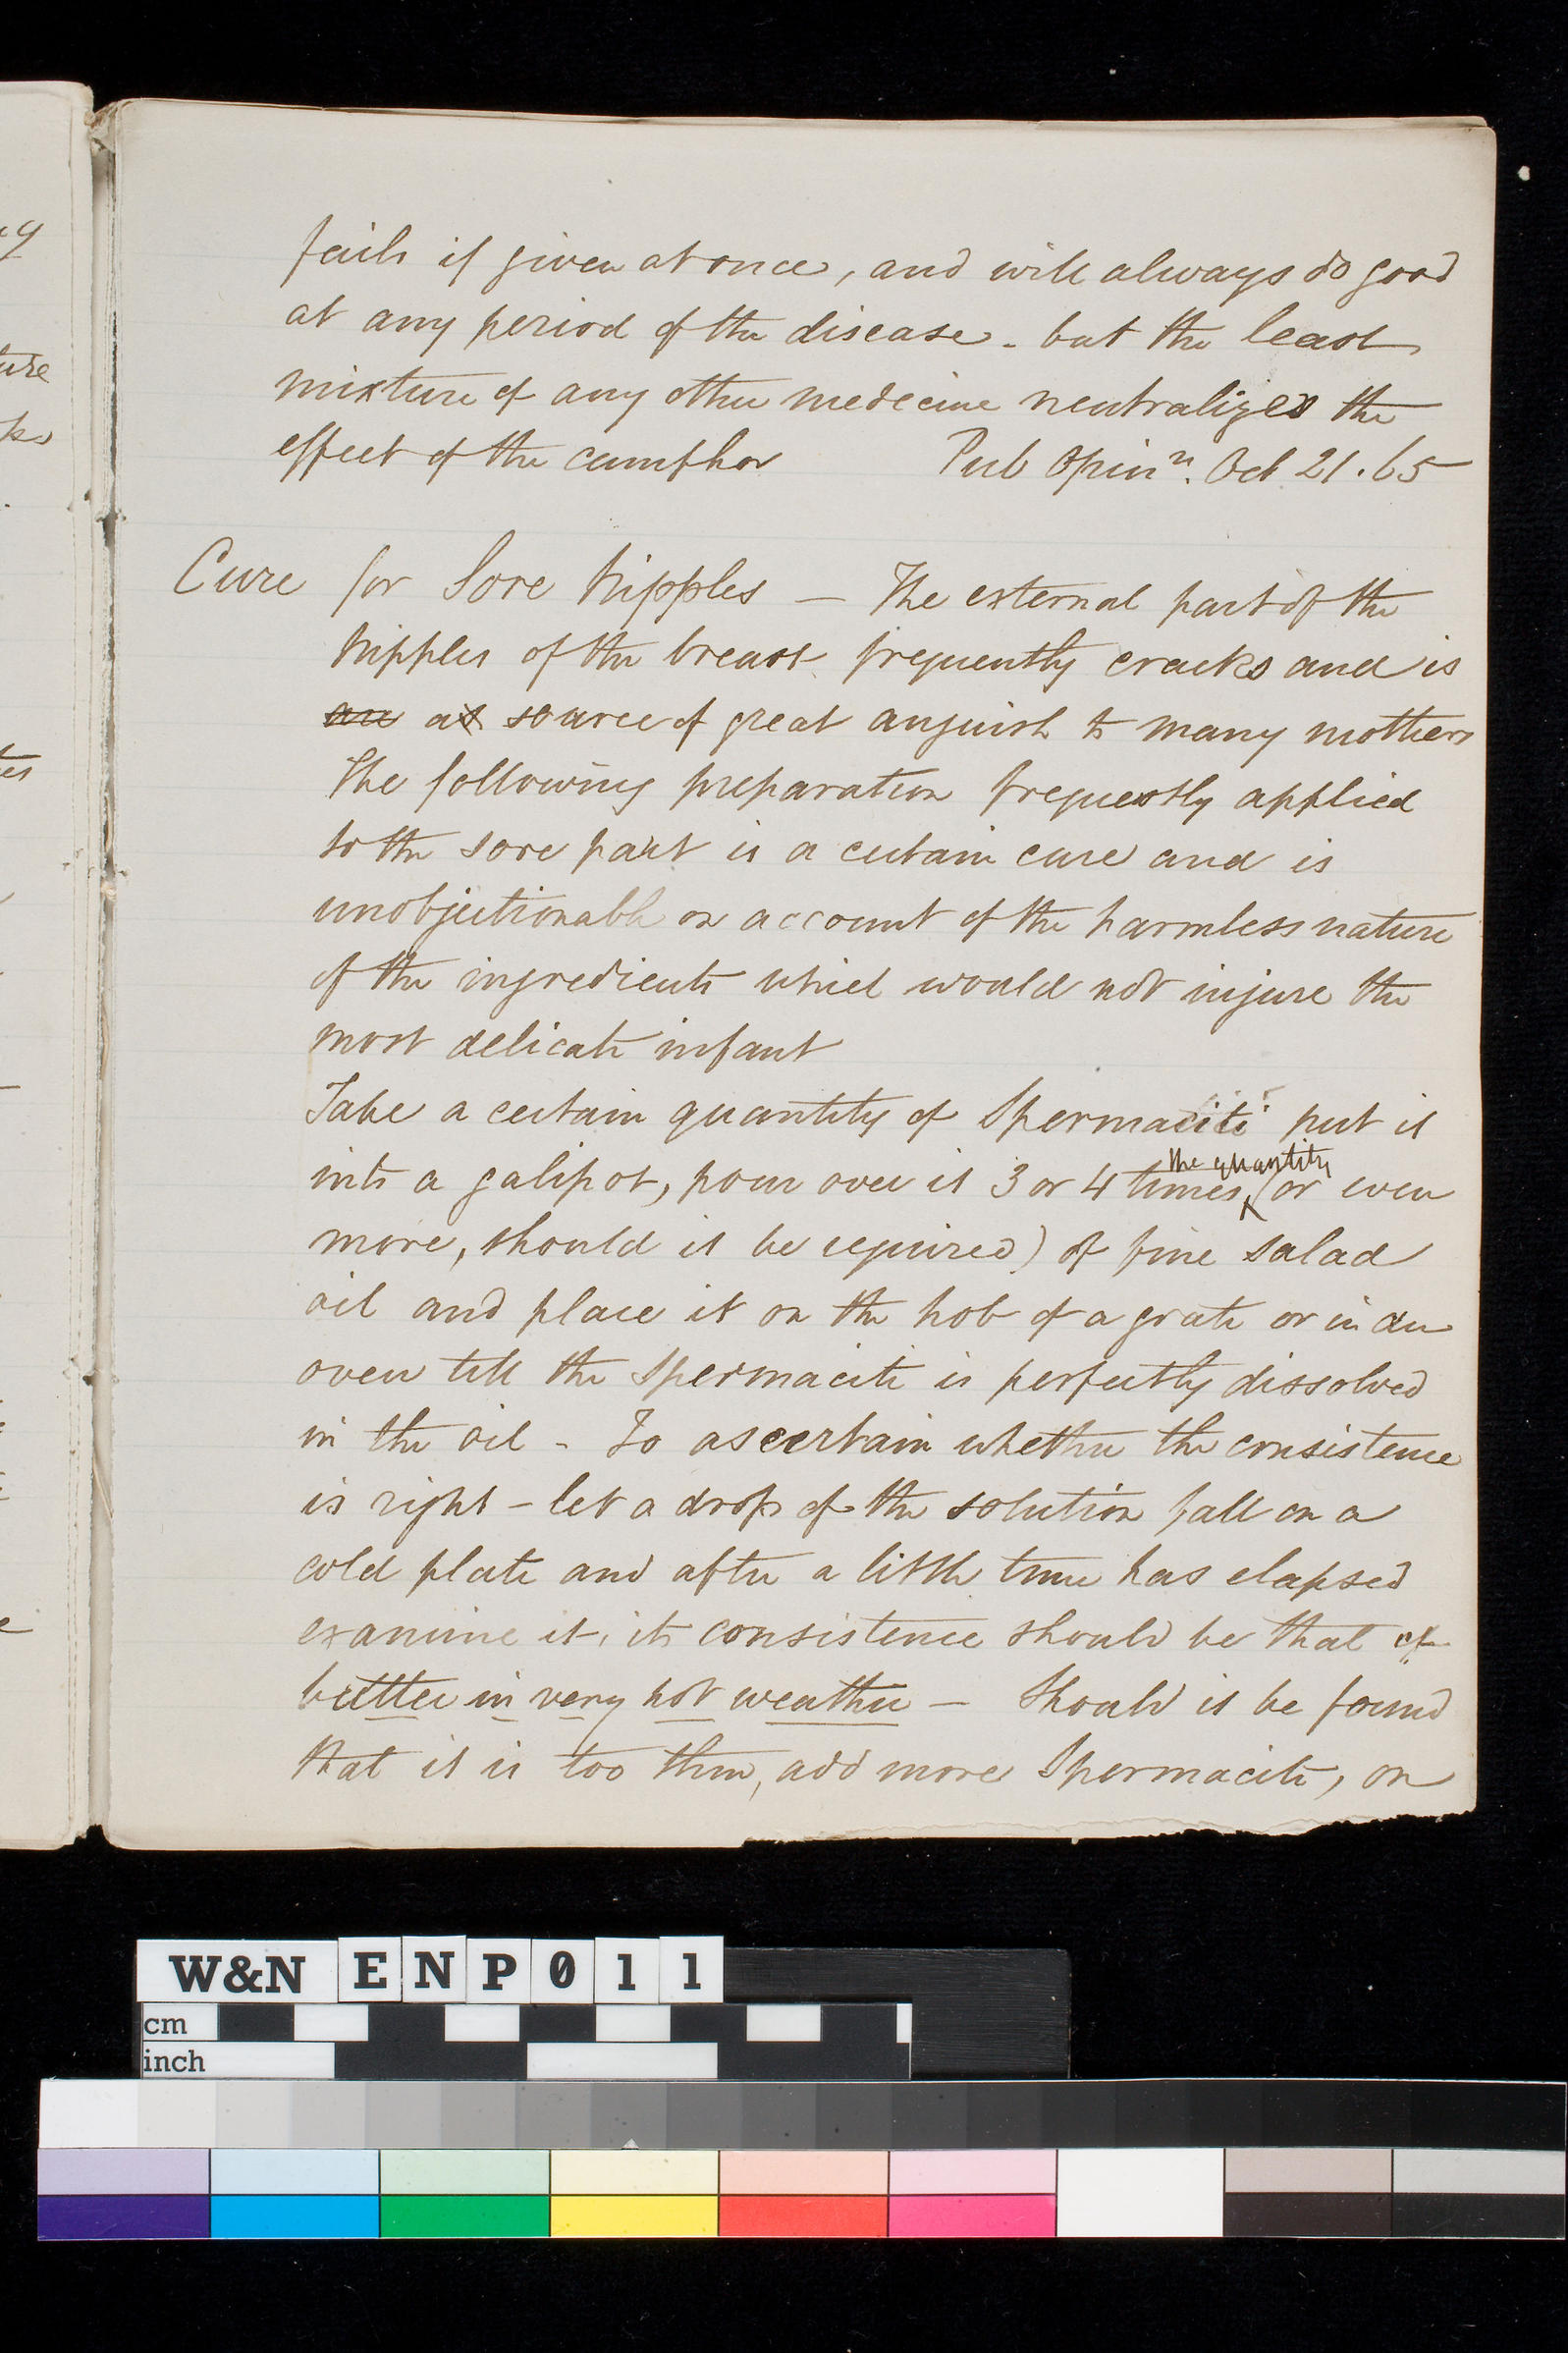 fails if given at once, and will always do good
at any period of the disease - but the least
mixture of any other medecine neutralizes the
effect of the camphor Pub Opinn. Oct 21. 65
Cure for Sore Nipples — The external part of the
Nipples of the breast frequently cracks and is
an a source of great anguish to many mothers
The following preparation frequently applied
to the sore part is a certain cure and is
unobjectionable on account of the harmless nature
of the ingredients which would not injure the
most delicate infant
Take a certain quantity of Spermaciti put it
the quantity
into a galipot, pour over it 3 or 4 times (or even
more, should it be required) of fine salad
oil and place it on the hob of a grate or in an
oven till the Spermaciti is perfectly dissolved
in the oil - To ascertain whether the consistence
is right - let a drop of the solution fall on a
cold plate and after a little time has elapsed
examine it, its consistence should be that of
butter in very hot weather — Should it be found
that it is too thin, add more Spermaciti, on
ure
W&N ENP011
cm
inch